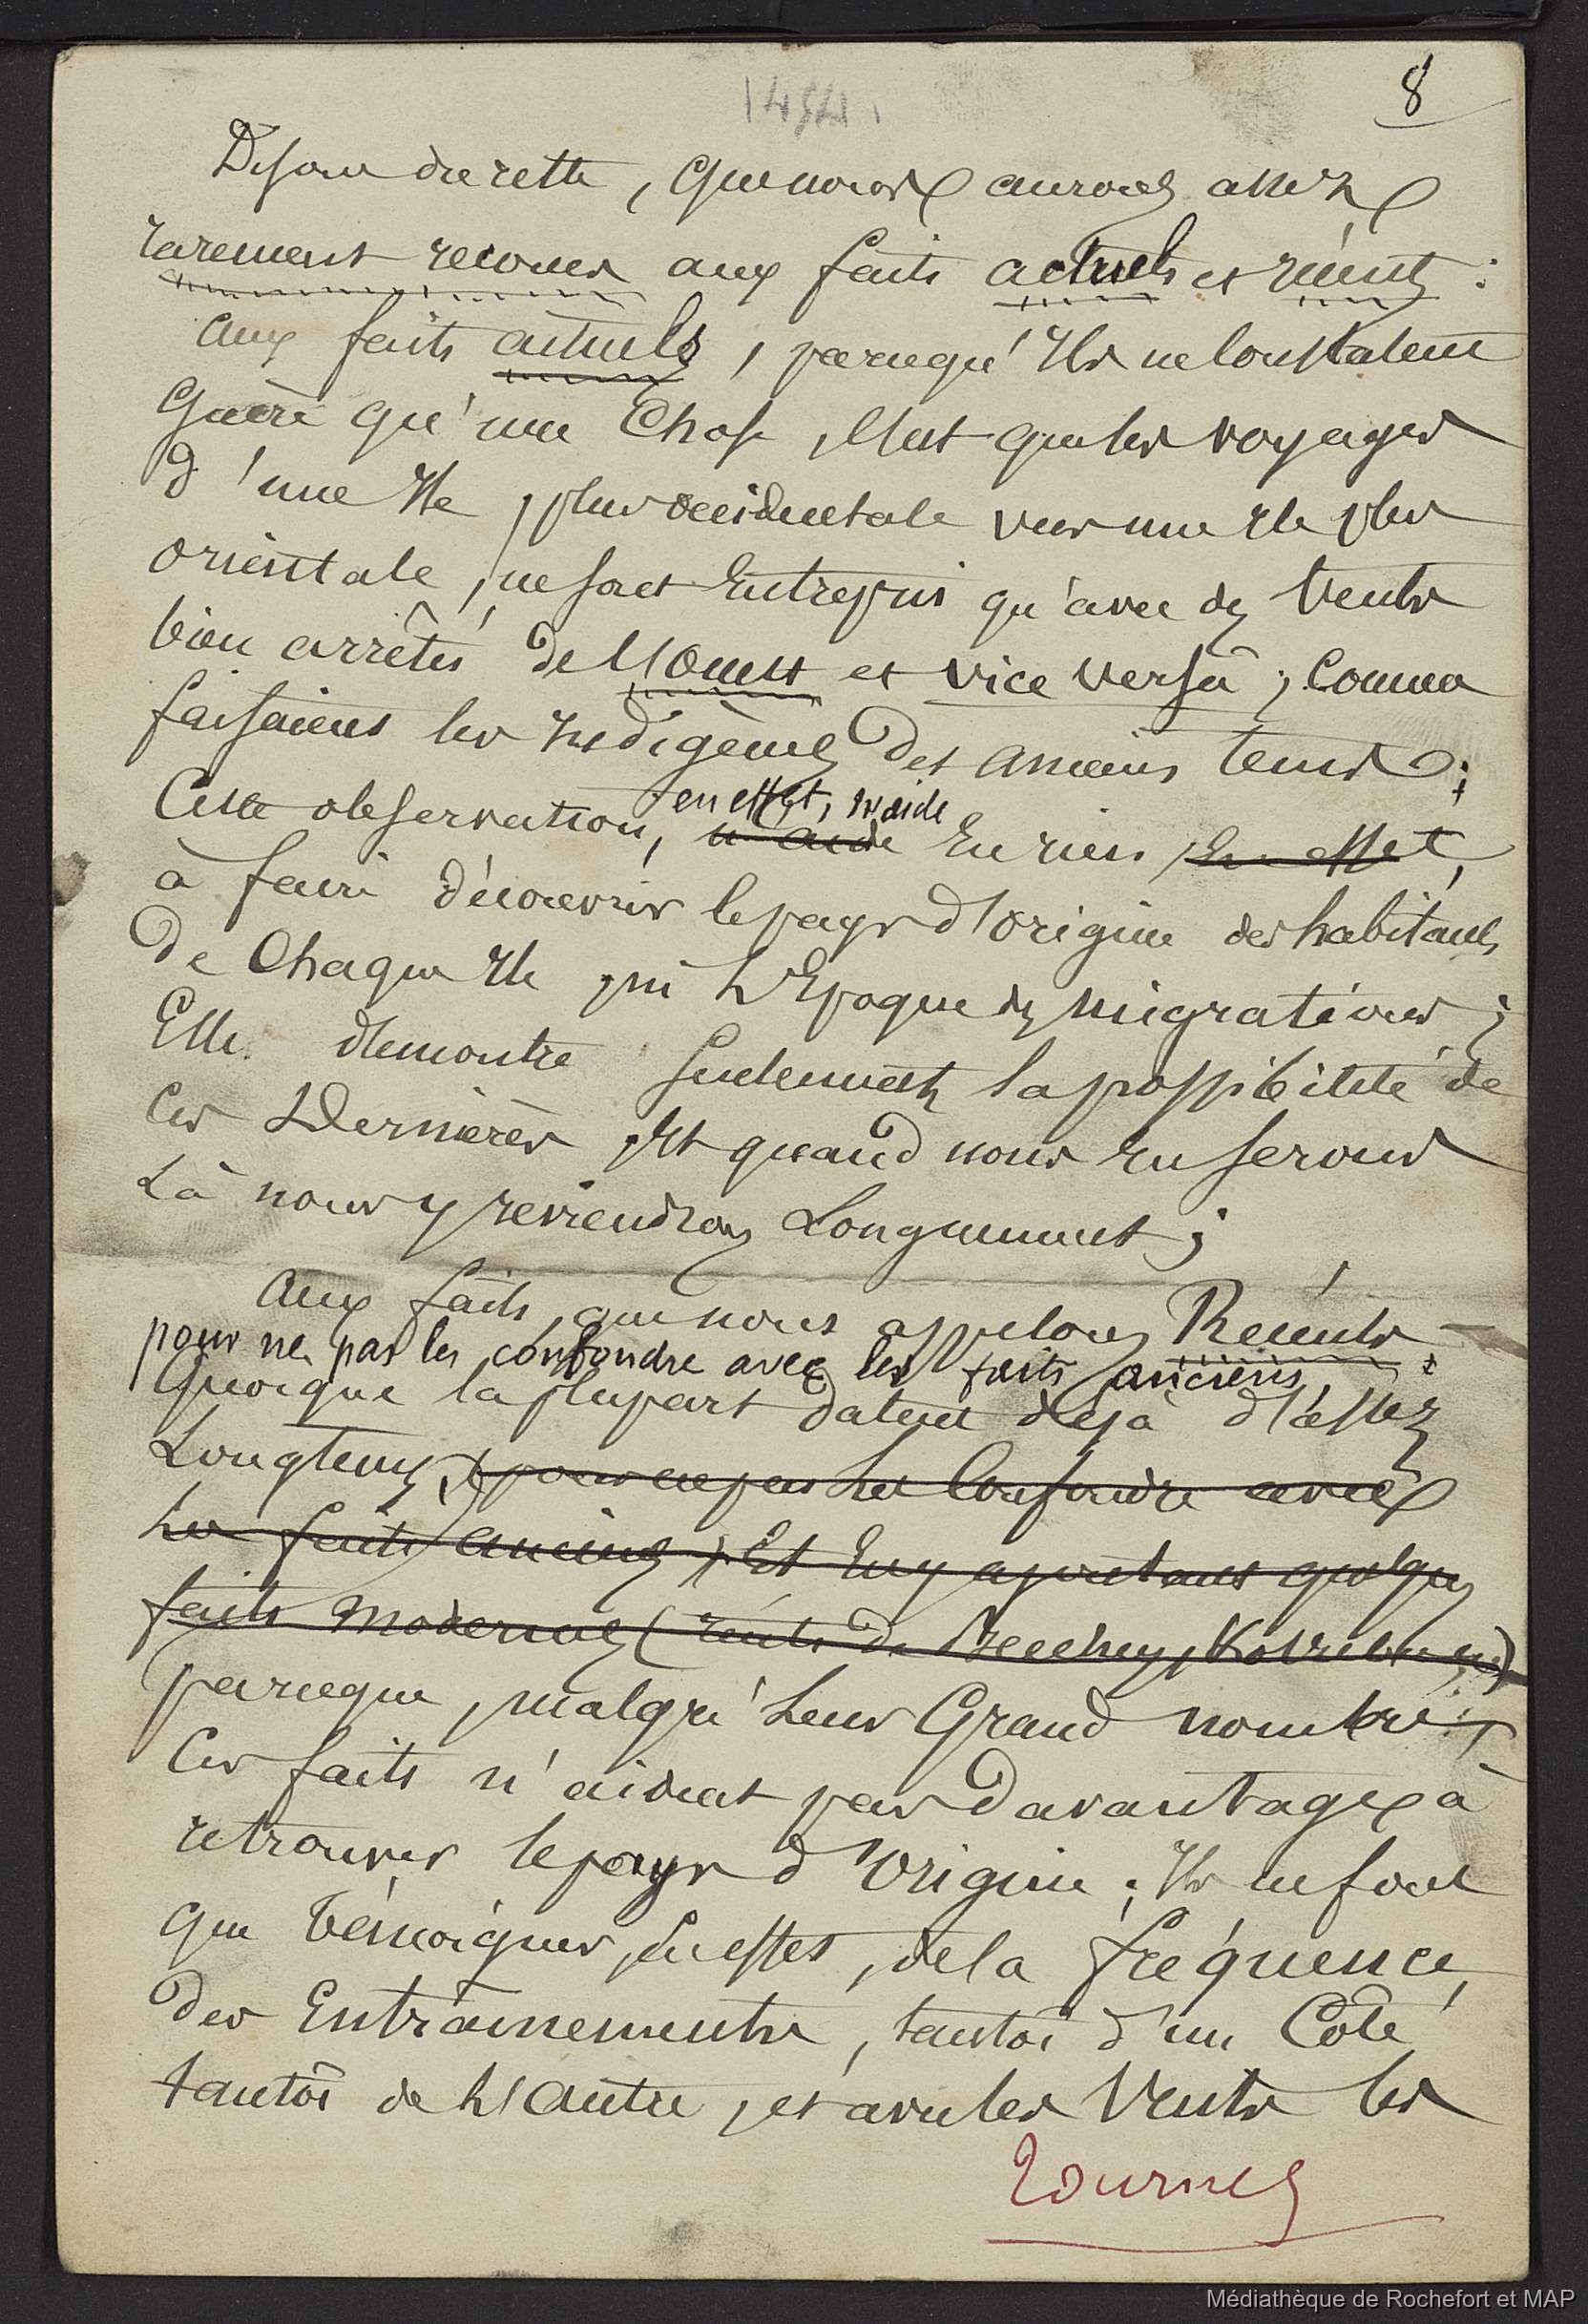 8
Disons de cette, que nous aurons assez
rarement recours aux faits actuels et récents :
aux faits actuels, parcequ'Ils ne constatent
Guère qu'une Chose, c'est que les voyages
d'une Ile, plus occidentale vers une Ile plus
orientale, ne sont Entrepris qu'avec des Vents
bien arrêtés de l'Ouest et vice versâ ; comme
faisaient les Indigènes des anciens tems ;
Cette observation, en effet, n'aide n'aide En rien, En effet,
à faire découvrir le pays d'origine des habitants
de Chaque Ile, ni L'Epoque des migrations ;
Elle démontre seulement la possibilité de
Ces Dernières, Et quand nous en serons
Là nous y reviendrons Longuement ;
Aux faits, que nous appelons Récents
pour ne pas les confondre avec les faits anciens,
Quoique la plupart datent déjà d'assez
Longtems, (pour ne pas Les Confondre avec
Les faits anciens), Et En y ajoutant quelques
faits modernes (récits de Beechey, Kotzebue, &)
parceque, malgré Leur Grand nombre,
Ces faits n'aident pas Davantage à
retrouver le pays d'Origine ; Ils ne font
que témoigner, En effet, de la fréquence
des Entraînements, tantôt d'un Côté
tantôt de L'autre, et avec les Vents les
Tournez
Médiathèque de Rochefort et MAP